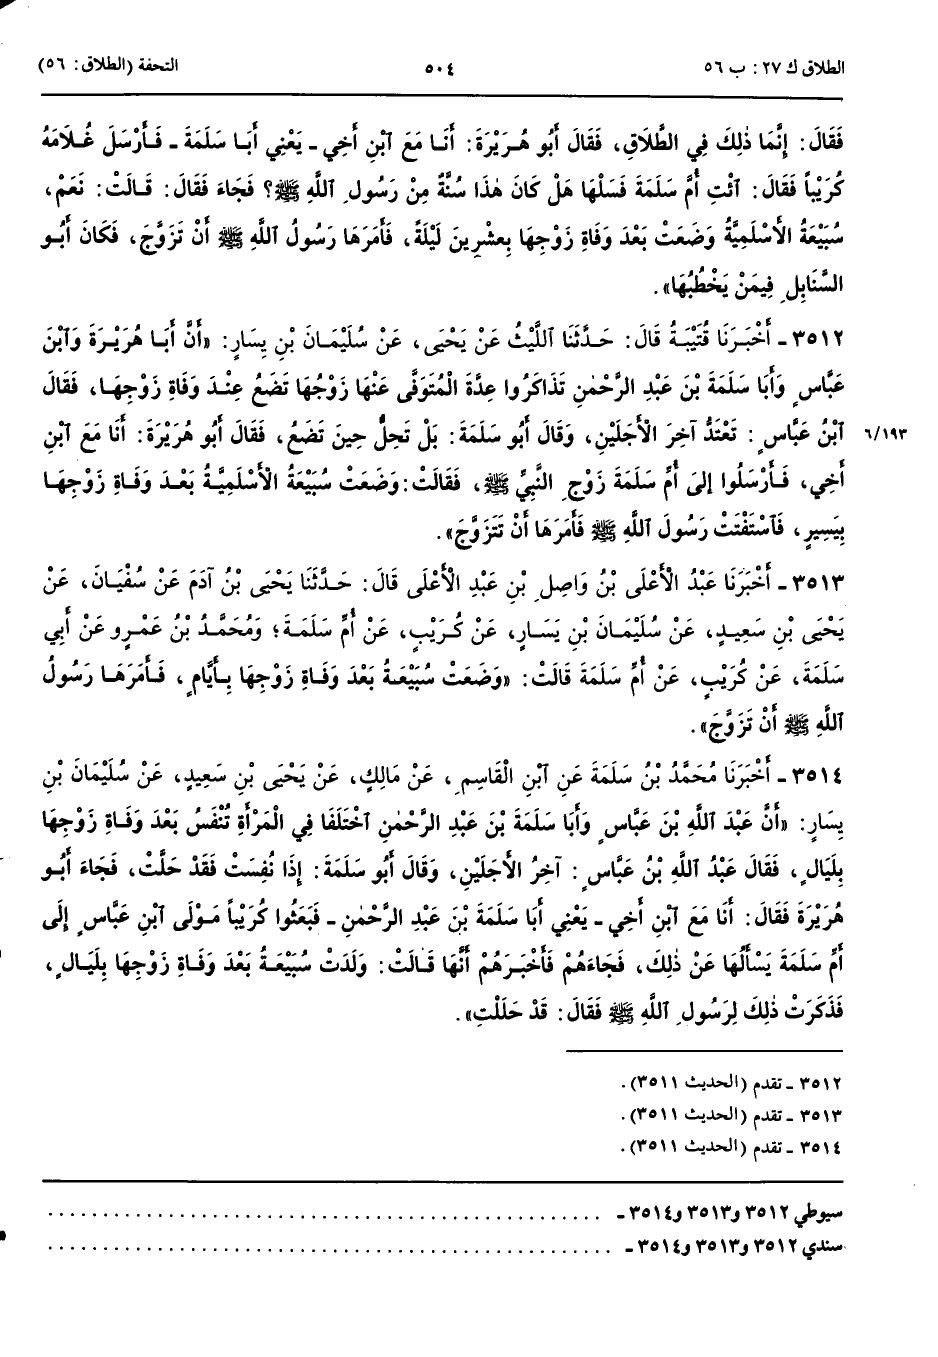 الطلاق ك ٢٧: ب ٥٦ ٥٠٤ التحفة (الطلاق: ٥٦)
فَقَالَ: إِنَّمَا ذٰلِكَ فِي الطَّلَاقِ، فَقَالَ أَبُو هُرَيْرَةَ: أَنَا مَعَ ٱبْنِ أَخِي ـ يَعْنِي أَبَا سَلَمَةَ ـ فَأَرْسَلَ غُلَامَهُ
كُرَيْباً فَقَالَ: ٱئْتِ أُمَّ سَلَمَةَ فَسَلْهَا هَلْ كَانَ هٰذَا سُنَّةٌ مِنْ رَسُولِ ٱللَّهِ ﷺ؟ فَجَاءَ فَقَالَ: قَالَتْ: نَعَمْ،
سُبَيْعَةُ الأَسْلَمِيَّةُ وَضَعَتْ بَعْدَ وَفَاةِ زَوْجِهَا بِعشْرِينَ لَيْلَةً، فَأَمَرَهَا رَسُولُ ٱللَّهِ ﷺ أَنْ تَزَوَّجَ، فَكَانَ أَبُو
السَّنَابِلِ فِيمَنْ يَخْطُبُهَا».
٣٥١٢ ـ أَخْبَرَنَا قُتَيْبَةُ قَالَ: حَدَّثَنَا اللَّيْثُ عَنْ يَحْيَى، عَنْ سُلَيْمَانَ بْنِ يَسَارٍ: «أَنَّ أَبَا هُرَيْرَةَ وَٱبْنَ
عَبَّاسٍ وَأَبَا سَلَمَةَ بْنَ عَبْدِ الرَّحْمٰنِ تَذَاكَرُوا عِدَّةَ الْمُتَوَفَّى عَنْهَا زَوْجُهَا تَضَعُ عِنْدَ وَفَاةِ زَوْجِهَا، فَقَالَ
ٱبْنُ عَبَّاسٍ: تَعْتَدُّ آخِرَ الأَجَلَيْنِ، وَقَالَ أَبُو سَلَمَةَ: بَلْ تَحِلُّ حِينَ تَضَعُ، فَقَالَ أَبُو هُرَيْرَةَ: أَنَا مَعَ ٱبْنِ ٦/١٩٣
أَخِي، فَأَرْسَلُوا إِلَى أُمِّ سَلَمَةَ زَوْجِ النَّبِيِّ ﷺ، فَقَالَتْ: وَضَعَتْ سُبَيْعَةُ الأَسْلَمِيَّةُ بَعْدَ وَفَاةِ زَوْجِهَا
بِيَسِيرٍ، فَٱسْتَفْتَتْ رَسُولَ ٱللَّهِ ﷺ فَأَمَرَهَا أَنْ تَتَزَوَّجَ».
٣٥١٣ ـ أَخْبَرَنَا عَبْدُ الأَعْلَى بْنُ وَاصِلِ بْنِ عَبْدِ الأَعْلَى قَالَ: حَدَّثَنَا يَحْيَى بْنُ آدَمَ عَنْ سُفْيَانَ، عَنْ
يَحْيَى بْنِ سَعِيدٍ، عَنْ سُلَيْمَانَ بْنِ يَسَارٍ، عَنْ كُرَيْبٍ، عَنْ أُمِّ سَلَمَةَ؛ وَمُحَمَّدُ بْنُ عَمْرٍو عَنْ أَبِي
سَلَمَةَ، عَنْ كُرَيْبٍ، عَنْ أُمِّ سَلَمَةَ قَالَتْ: «وَضَعَتْ سُبَيْعَةُ بَعْدَ وَفَاةِ زَوْجِهَا بِأَيَّامٍ، فَأَمَرَهَا رَسُولُ
ٱللَّهِ ﷺ أَنْ تَزَوَّجَ».
٣٥١٤ ـ أَخْبَرَنَا مُحَمَّدُ بْنُ سَلَمَةَ عَنِ ٱبْنِ الْقَاسِمِ، عَنْ مَالِكٍ، عَنْ يَحْيَى بْنِ سَعِيدٍ، عَنْ سُلَيْمَانَ بْنِ
يَسَارٍ: «أَنَّ عَبْدَ ٱللَّهِ بْنَ عَبَّاسٍ وَأَبَا سَلَمَةَ بْنَ عَبْدِ الرَّحْمٰنِ ٱخْتَلَفَا فِي الْمَرْأَةِ تُنْفَسُ بَعْدَ وَفَاةِ زَوْجِهَا
بِلَيَالٍ، فَقَالَ عَبْدُ ٱللَّهِ بْنُ عَبَّاسٍ: آخِرُ الأَجَلَيْنِ، وَقَالَ أَبُو سَلَمَةَ: إِذَا نُفِسَتْ فَقَدْ حَلَّتْ، فَجَاءَ أَبُو
هُرَيْرَةَ فَقَالَ: أَنَا مَعَ ٱبْنِ أَخِي ـ يَعْنِي أَبَا سَلَمَةَ بْنَ عَبْدِ الرَّحْمٰنِ ـ فَبَعَثُوا كُرَيْباً مَوْلَى ٱبْنِ عَبَّاسٍ إِلَى
أُمِّ سَلَمَةَ يَسْأَلُهَا عَنْ ذٰلِكَ، فَجَاءَهُمْ فَأَخْبَرَهُمْ أَنَّهَا قَالَتْ: وَلَدَتْ سُبَيْعَةُ بَعْدَ وَفَاةِ زَوْجِهَا بِلَيَالٍ،
فَذَكَرَتْ ذٰلِكَ لِرَسُولِ ٱللَّهِ ﷺ فَقَالَ: قَدْ حَلَلْتِ».
٣٥١٢ ـ تقدم (الحديث ٣٥١١).
٣٥١٣ ـ تقدم (الحديث ٣٥١١).
٣٥١٤ ـ تقدم (الحديث ٣٥١١).
سيوطي ٣٥١٢ و٣٥١٣ و٣٥١٤ ـ ........................................
سندي ٣٥١٢ و٣٥١٣ و٣٥١٤ ـ ........................................